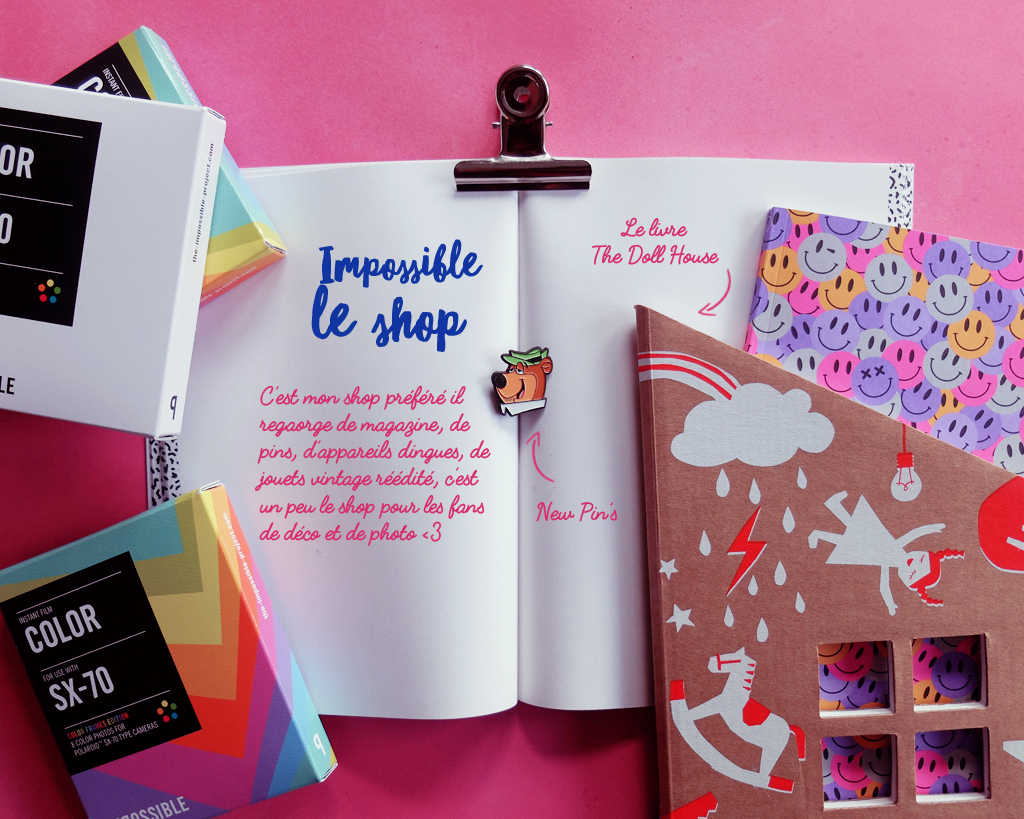 INSTANT FILM
OR
O
the-impossible-project.com
LE
Impossible
le shop
C'est mon shop préféré il
regaorge de magazine, de
pins, d'appareils dingues, de
jouets vintage réédité, c'est
un peu le shop pour les fans
de déco et de photo <3
Le livre
The Doll House
New Pin's
the-impossible-project.com
INSTANT FILM
COLOR
FOR USE WITH
SX-70
COLOR FRAMES EDITION
8 COLOR PHOTOS FOR
POLAROID™ SX-70 TYPE CAMERAS
POSSIBLE